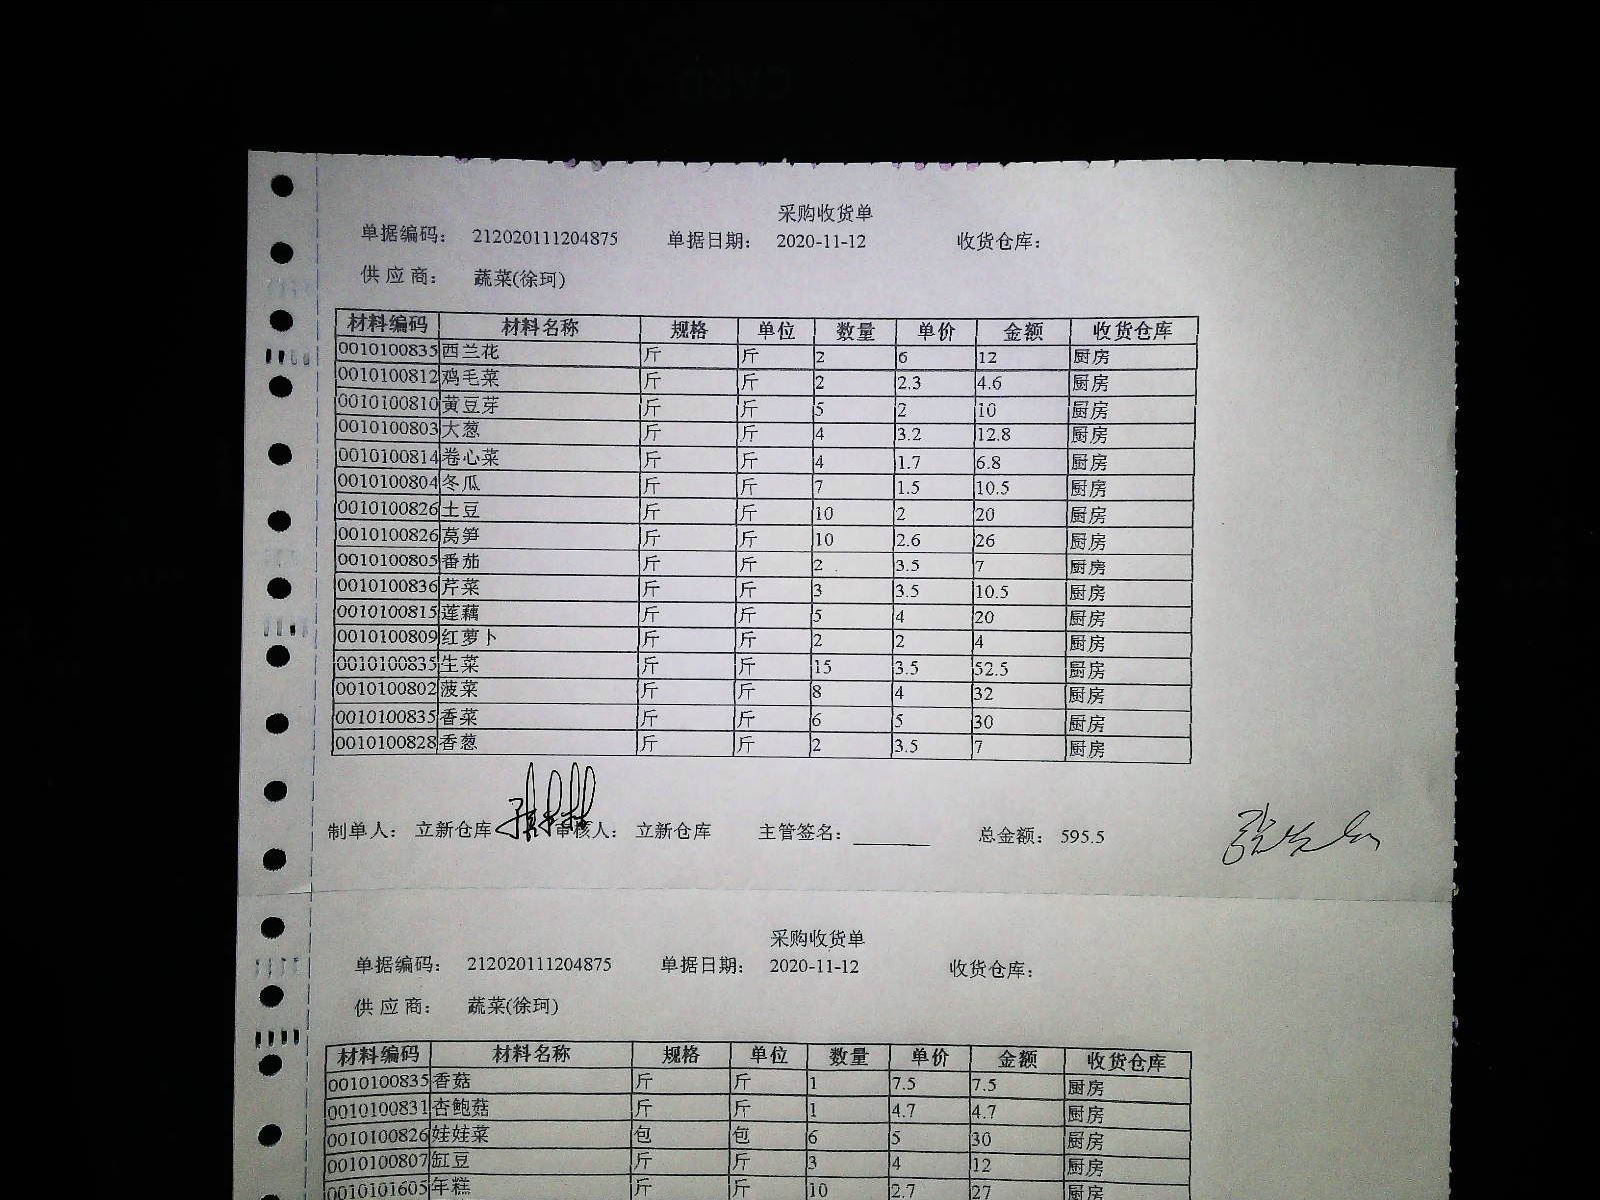 采购收货单
单据编码： 212020111204875 单据日期： 2020-11-12 收货仓库：
供应商： 蔬菜(徐珂)
材料编码 材料名称 规格 单位 数量 单价 金额 收货仓库
0010100835 西兰花 斤 斤 2 6 12 厨房
0010100812 鸡毛菜 斤 斤 2 2.3 4.6 厨房
0010100810 黄豆芽 斤 斤 5 2 10 厨房
0010100803 大葱 斤 斤 4 3.2 12.8 厨房
0010100814 卷心菜 斤 斤 4 1.7 6.8 厨房
0010100804 冬瓜 斤 斤 7 1.5 10.5 厨房
0010100826 土豆 斤 斤 10 2 20 厨房
0010100826 莴笋 斤 斤 10 2.6 26 厨房
0010100805 番茄 斤 斤 2 3.5 7 厨房
0010100836 芹菜 斤 斤 3 3.5 10.5 厨房
0010100815 莲藕 斤 斤 5 4 20 厨房
0010100809 红萝卜 斤 斤 2 2 4 厨房
0010100835 生菜 斤 斤 15 3.5 52.5 厨房
0010100802 菠菜 斤 斤 8 4 32 厨房
0010100835 香菜 斤 斤 6 5 30 厨房
0010100828 香葱 斤 斤 2 3.5 7 厨房
制单人： 立新仓库 审核人： 立新仓库 主管签名： 总金额： 595.5
采购收货单
单据编码： 212020111204875 单据日期： 2020-11-12 收货仓库：
供应商： 蔬菜(徐珂)
材料编码 材料名称 规格 单位 数量 单价 金额 收货仓库
0010100835 香菇 斤 斤 1 7.5 7.5 厨房
0010100831 杏鲍菇 斤 斤 1 4.7 4.7 厨房
0010100826 娃娃菜 包 包 6 5 30 厨房
0010100807 缸豆 斤 斤 3 4 12 厨房
0010101605 年糕 斤 斤 10 2.7 27 厨房